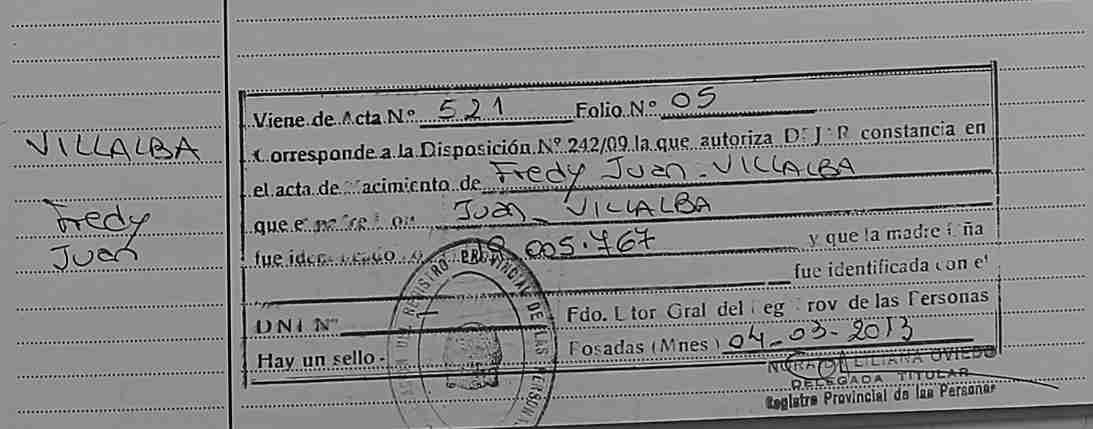 VILLALBA
Fredy
Juan
Viene de Acta Nº 521 Folio Nº 05
Corresponde a la Disposición Nº 242/09 la que autoriza DEJAR constancia en
el acta de nacimiento de Fredy Juan - VILLALBA
que el padre Juan - VILLALBA
fue 005.767 y que la madre
fue identificada con el
DNI Nº Fdo. Gral del de las Personas
Hay un sello - Posadas (Mnes) 04-03-2013
LILIANA OVIEDO
DELEGADA TITULAR
Registro Provincial de las Personas
REGISTRO PROVINCIAL DE LAS PERSONAS